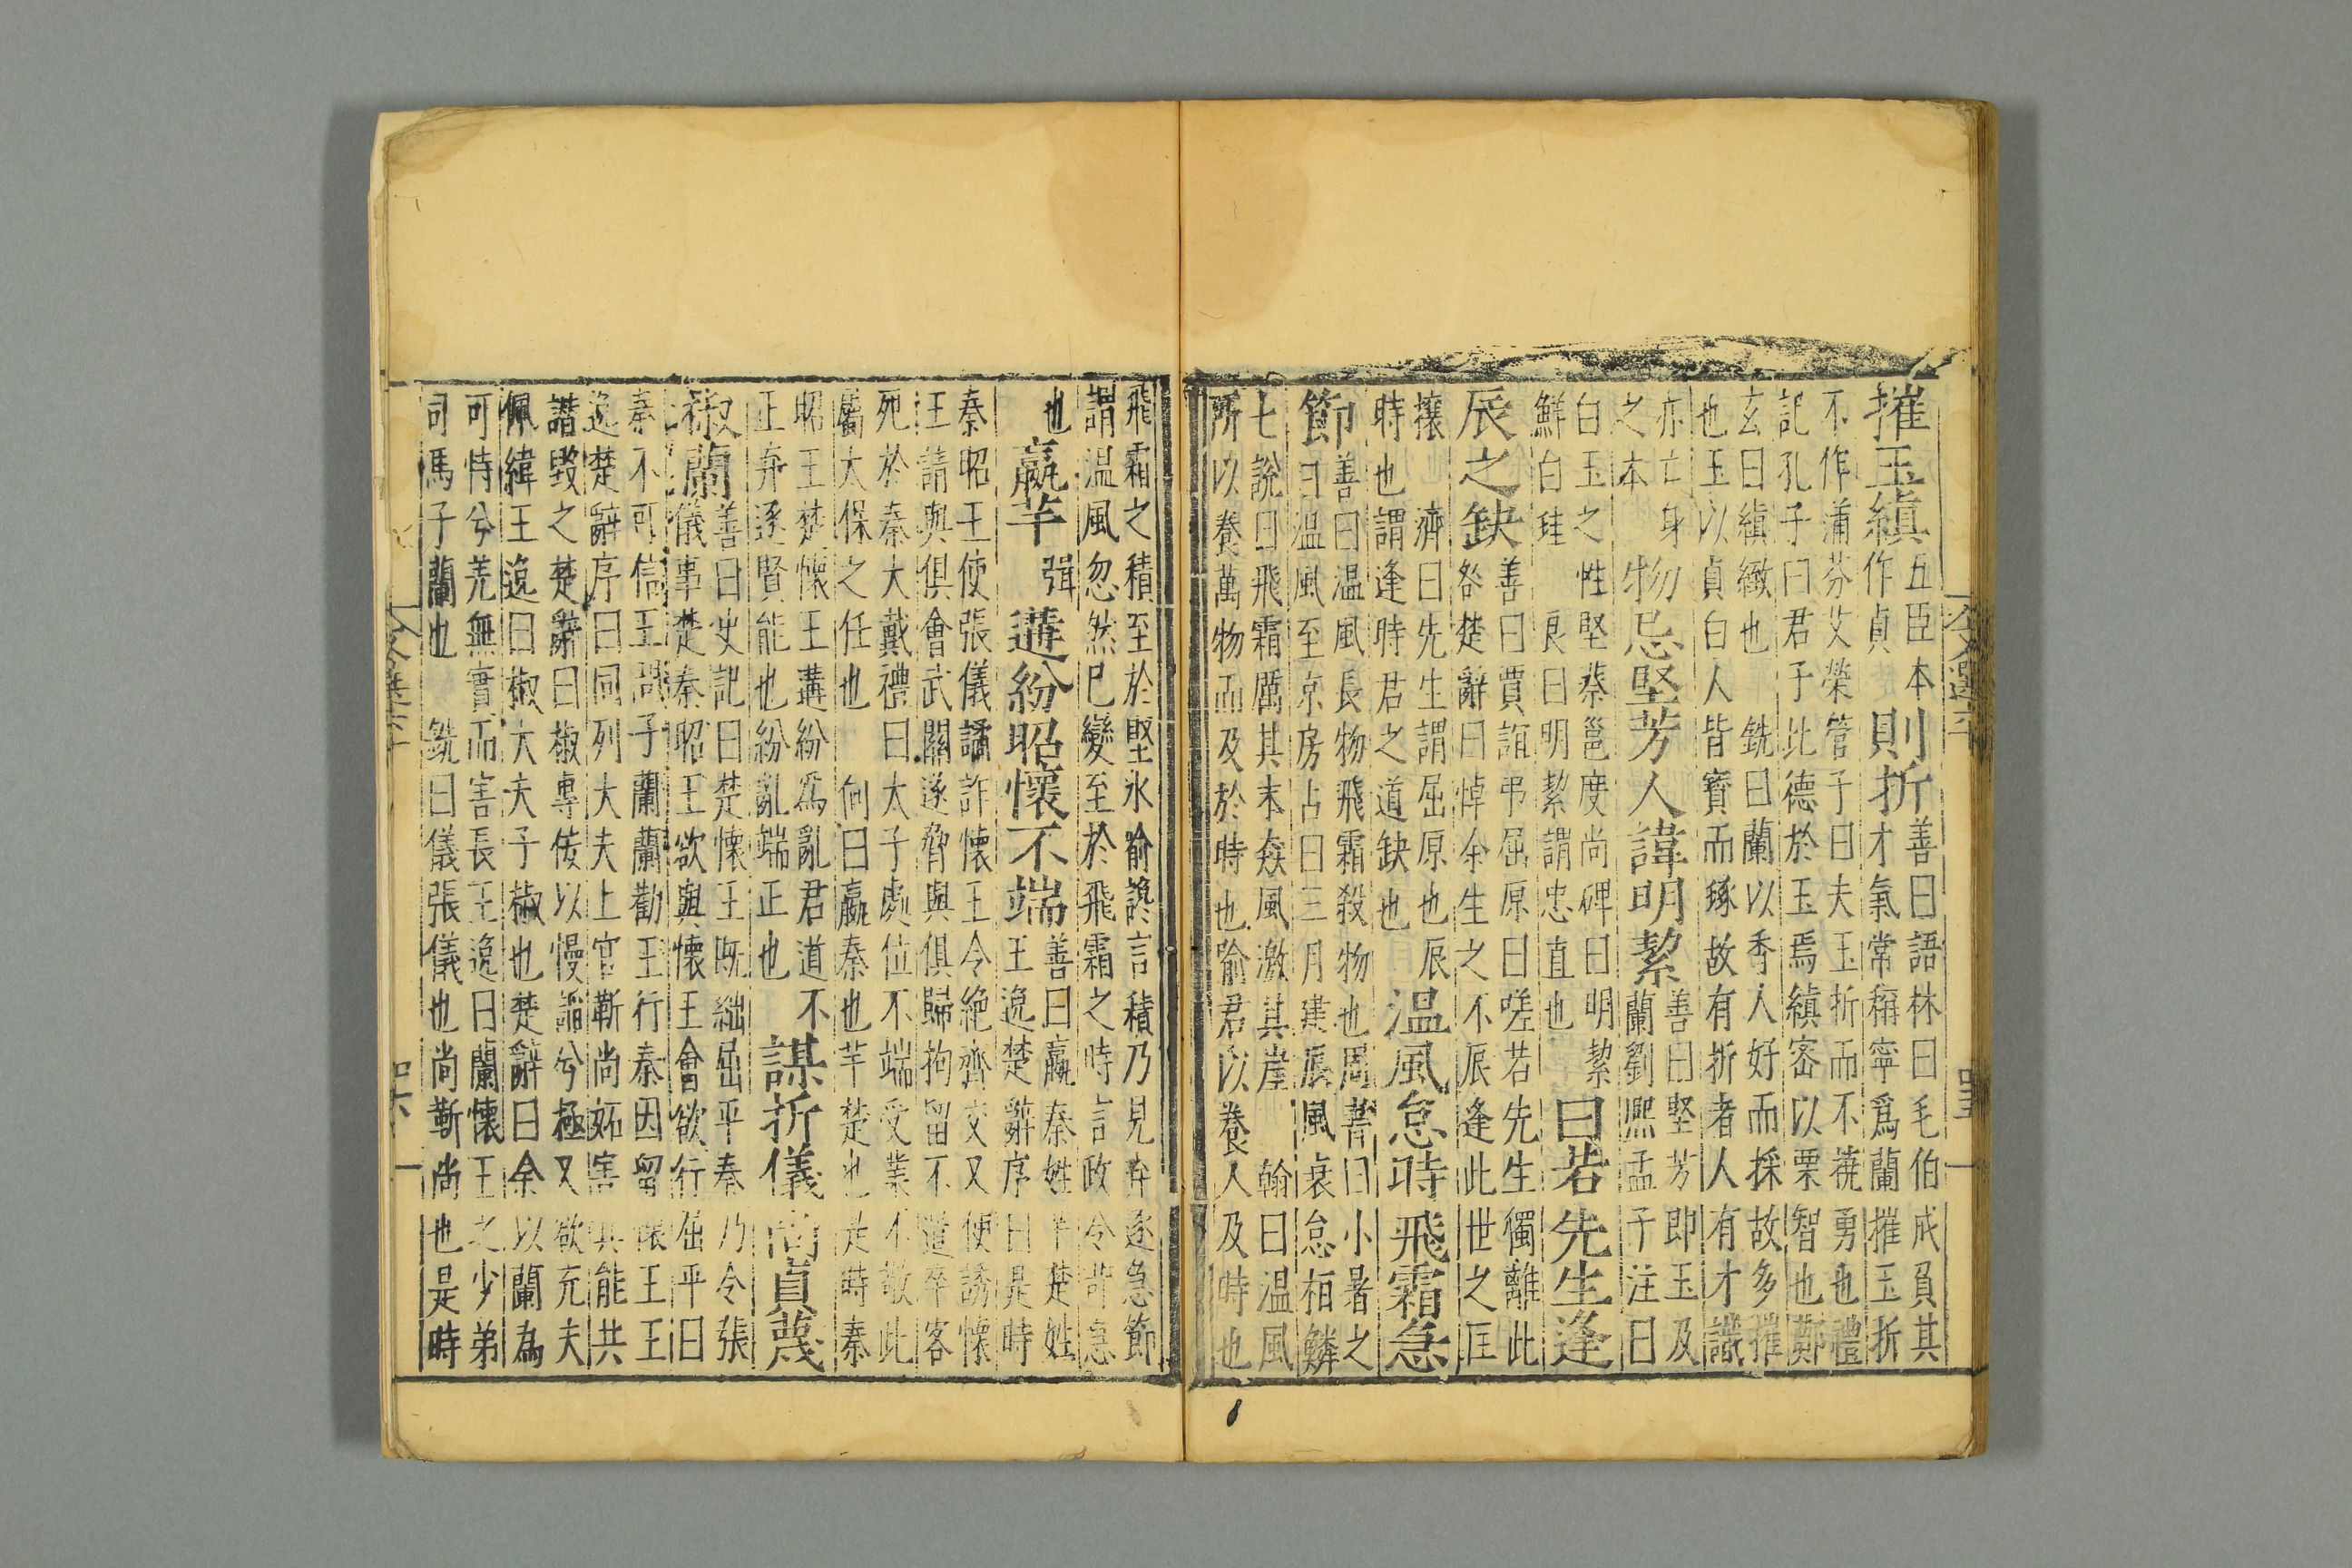 摧玉縝五臣本作貞則折善曰語林曰毛伯成負其才氣常稱寧爲蘭摧玉折
不作蒲芬艾榮管子曰夫玉折而不撓勇也禮
記孔子曰君子比德於玉焉縝宻以栗智也鄭
玄曰縝緻也 銑曰蘭以香人好而採故多摧
也玉以貞白人皆寳而琢故有折者人有才識
亦亡身之本物忌堅芳人諱明絜善曰堅芳即玉及蘭劉熙孟子注曰
白玉之性堅蔡邕度尚碑曰明絜鮮白珪 良曰明絜謂忠直也曰若先生逢
辰之缺善曰賈誼弔屈原曰嗟若先生獨離此咎楚辭曰悼余生之不辰逢此世之匡
攘 濟曰先生謂屈原也辰時也謂逢時君之道缺也温風怠時飛霜急
節善曰温風長物飛霜殺物也周書曰小暑之日温風至京房占曰三月建辰風衰怠栢鱗
七說曰飛霜厲其末猋風激其崖 翰曰温風
所以養萬物而及於時也喻君以養人及時也
文選六十
四十五
飛霜之積至於堅氷喻讒言積乃見弃逐急節
謂温風忽然已變至於飛霜之時言政令苛急
也嬴芊弭遘紛昭懷不端善曰嬴秦姓芊楚姓王逸楚辭序曰是時
秦昭王使張儀譎詐懷王令絶齊交又使誘懷
王請與俱會武關遂脅與俱歸拘留不遣卒客
死於秦大戴禮曰太子處位不端受業不敬此
屬大保之任也 向曰嬴秦也芊楚也是時秦
昭王楚懷王遘紛爲亂君道不正弃逐賢能也紛亂端正也謀折儀尚貞蔑
椒蘭善曰史記曰楚懷王既絀屈平秦乃令張儀事楚秦昭王欲與懷王會欲行屈平曰
秦不可信王問子蘭蘭勸王行秦因留懷王王
逸楚辭序曰同列大夫上官靳尚妬害其能共
譖毀之楚辭曰椒專佞以慢謟兮極又欲充夫
佩幃王逸曰椒大夫子椒也楚辭曰余以蘭為
可恃兮羌無實而害長王逸曰蘭懷王之少弟
司馬子蘭也 銑曰儀張儀也尚靳尚也是時
文選六十
四十六